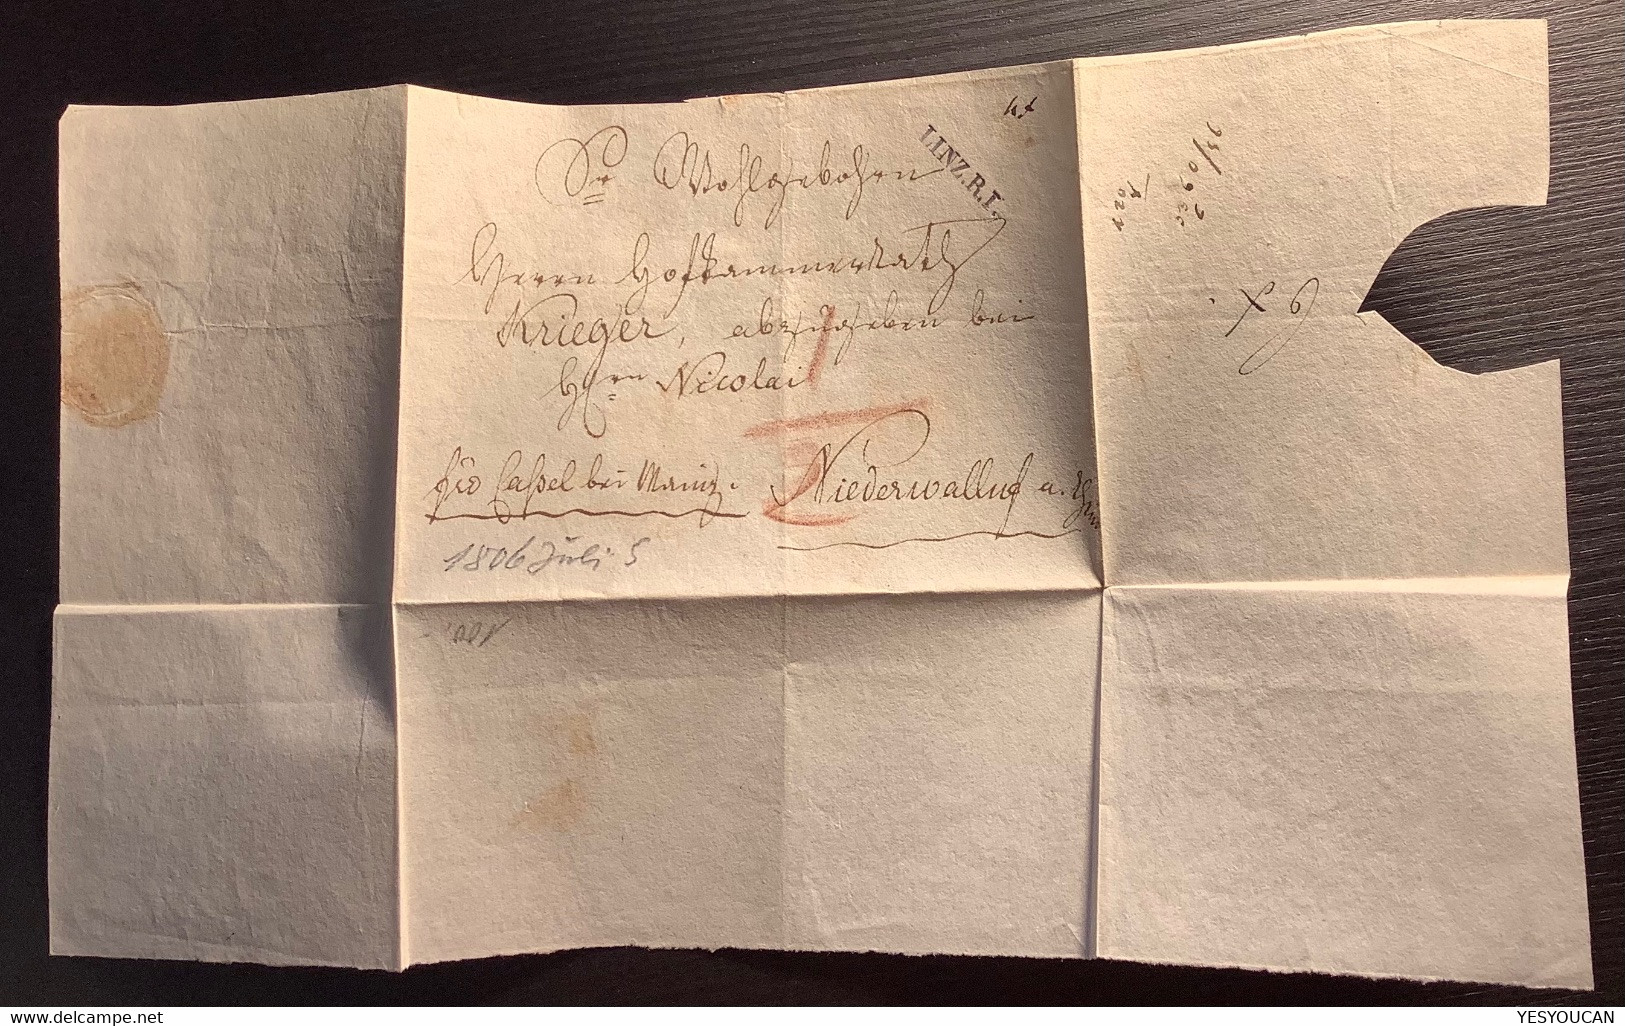 Sr Wohlgebohren
LINZ.R.I.
Herrn Hofkammerrath
Krieger, abzugeben bei
Hrn Nicolai
pro Cassel bei Mainz. Niederwalluf a. Rhein
1806 Juli 5
www.delcampe.net
YESYOUCAN